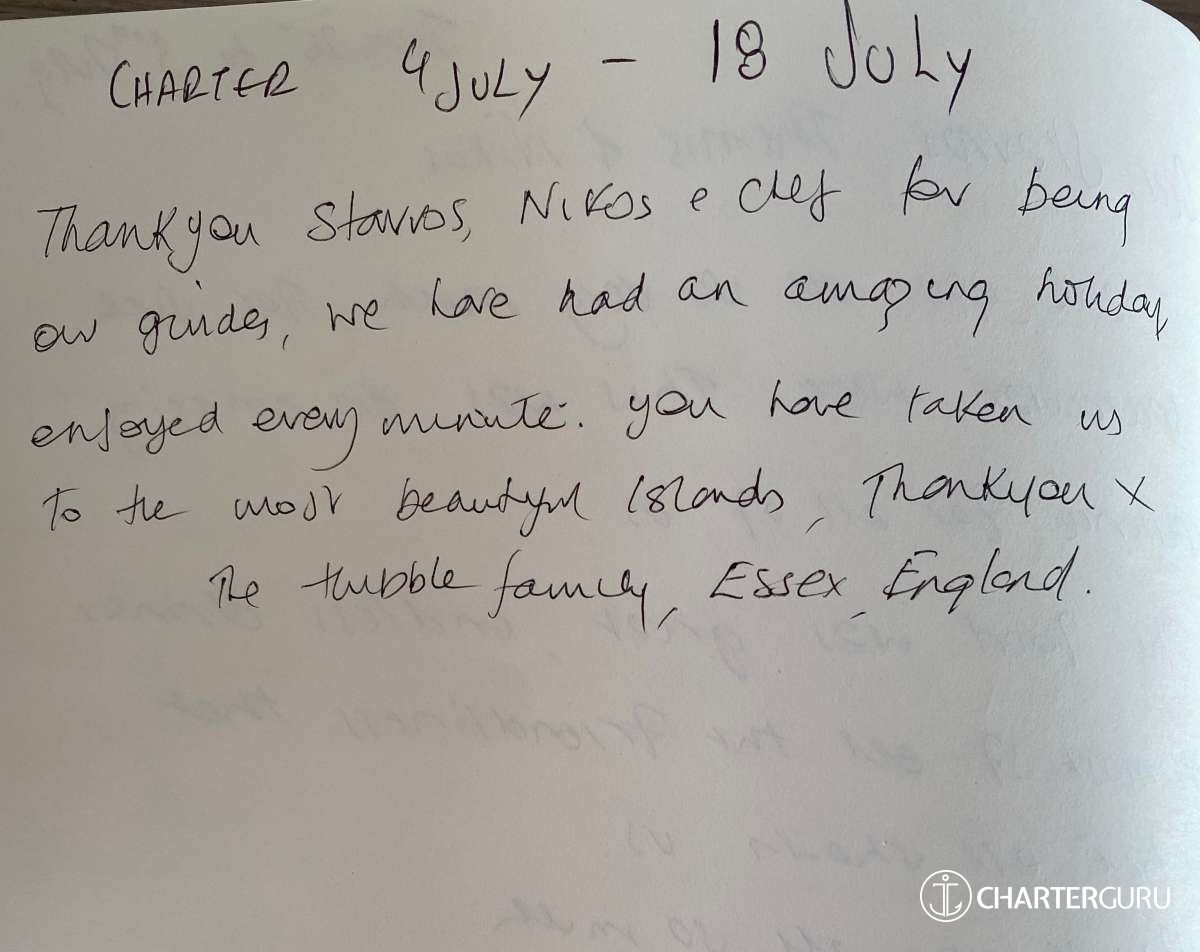 CHARTER 4 JULY - 18 JULY
Thankyou Stavros, Nikos e chef for being
our guides, we have had an amazing holiday
enjoyed every minute. you have taken us
To the most beautiful Islands, Thankyou x
The Hubble family, Essex, England.
CHARTERGURU